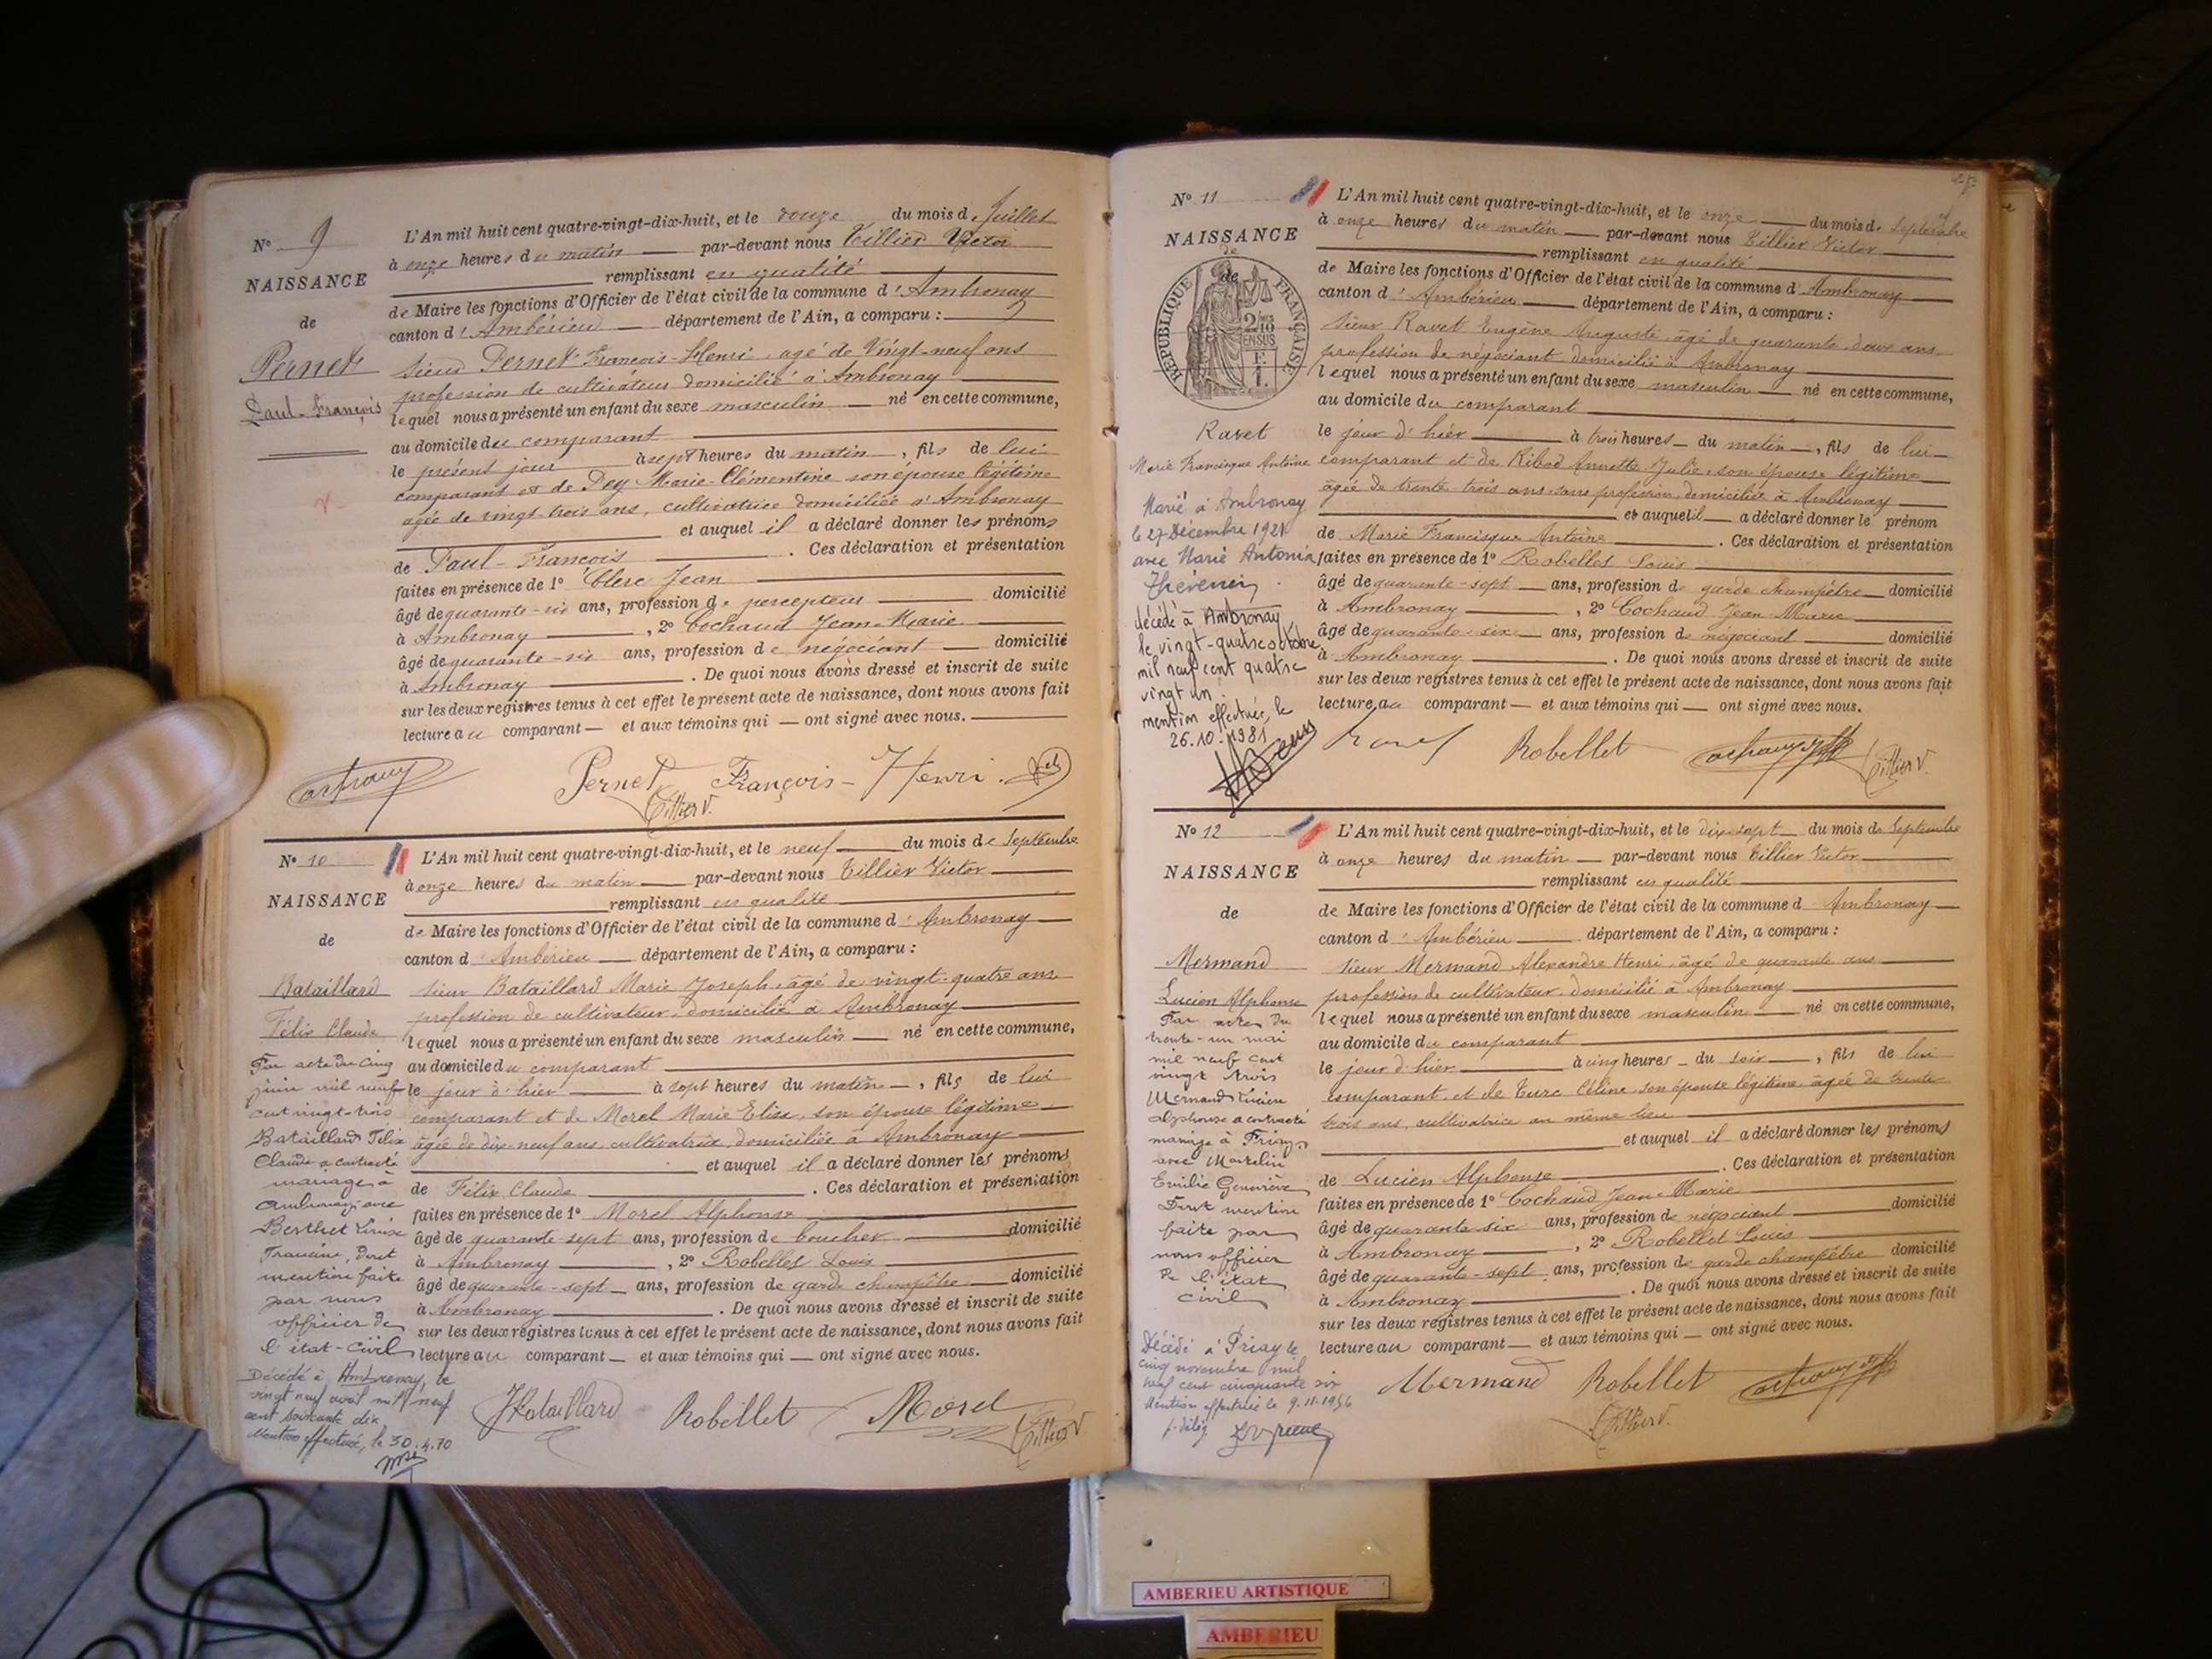 N° 9
NAISSANCE
de
Pernet
Paul-François
L'An mil huit cent quatre-vingt-dix-huit, et le douze du mois de Juillet
à onze heures du matin par-devant nous Tillier Victor
remplissant en qualité
de Maire les fonctions d'Officier de l'état civil de la commune d'Ambronay
canton d'Ambérieu département de l'Ain, a comparu :
sieur Pernet François-Henri, agé de Vingt-neuf ans
profession de cultivateur domicilié à Ambronay
lequel nous a présenté un enfant du sexe masculin né en cette commune,
au domicile du comparant
le présent jour à sept heures du matin, fils de lui
comparant et de Dey Marie-Clémentine son épouse légitime
agée de vingt-trois ans, cultivatrice domiciliée à Ambronay
et auquel il a déclaré donner les prénoms
de Paul-François. Ces déclaration et présentation
faites en présence de 1° Clerc Jean
âgé de quarante-six ans, profession de percepteur domicilié
à Ambronay, 2° Cochaud Jean-Marie
âgé de quarante-six ans, profession de négociant domicilié
à Ambronay. De quoi nous avons dressé et inscrit de suite
sur les deux registres tenus à cet effet le présent acte de naissance, dont nous avons fait
lecture au comparant et aux témoins qui ont signé avec nous.
Pernet François-Henri
Tillier V.
N° 10
NAISSANCE
de
Bataillard
Félix Claude
Par acte du cinq
juin mil neuf
cent vingt-trois
Bataillard Félix
Claude a contracté
mariage à
Ambronay avec
Berthet Louise
Francine, dont
mention faite
par nous
officier de
l'état-civil
Décédé à Ambronay, le
vingt neuf avril mil neuf
cent soixante dix
Mention effectuée, le 30.4.70
L'An mil huit cent quatre-vingt-dix-huit, et le neuf du mois de Septembre
à onze heures du matin par-devant nous Tillier Victor
remplissant en qualité
de Maire les fonctions d'Officier de l'état civil de la commune d'Ambronay
canton d'Ambérieu département de l'Ain, a comparu :
sieur Bataillard Marie Joseph, âgé de vingt-quatre ans
profession de cultivateur, domicilié à Ambronay
lequel nous a présenté un enfant du sexe masculin né en cette commune,
au domicile du comparant
le jour d'hier à sept heures du matin, fils de lui
comparant et de Morel Marie Elise, son épouse légitime
âgée de dix-neuf ans, cultivatrice, domiciliée à Ambronay
et auquel il a déclaré donner les prénoms
de Félix Claude. Ces déclaration et présentation
faites en présence de 1° Morel Alphonse
âgé de quarante-sept ans, profession de boucher domicilié
à Ambronay, 2° Robellet Louis
âgé de quarante-sept ans, profession de garde champêtre domicilié
à Ambronay. De quoi nous avons dressé et inscrit de suite
sur les deux registres tenus à cet effet le présent acte de naissance, dont nous avons fait
lecture au comparant et aux témoins qui ont signé avec nous.
JBataillard Robellet Morel
Tillier V
N° 11
NAISSANCE
de
de
RÉPUBLIQUE FRANÇAISE
2/10
EN SUS
F.
1.
Ravet
Marie Francisque Antoine
Marié à Ambronay
le 27 Décembre 1921
avec Marie Antonia
Thévenin
décédé à Ambronay
le vingt-quatre octobre
mil neuf cent quatre
vingt un
mention effectuée, le
26.10.1981
L'An mil huit cent quatre-vingt-dix-huit, et le onze du mois de Septembre
à onze heures du matin par-devant nous Tillier Victor
remplissant en qualité
de Maire les fonctions d'Officier de l'état civil de la commune d'Ambronay
canton d'Ambérieu département de l'Ain, a comparu :
sieur Ravet Eugène Auguste, âgé de quarante-deux ans
profession de négociant domicilié à Ambronay
lequel nous a présenté un enfant du sexe masculin né en cette commune,
au domicile du comparant
le jour d'hier à trois heures du matin, fils de lui
comparant et de Ribod Annette Julie, son épouse légitime
âgée de trente-trois ans, sans profession, domiciliée à Ambronay
et auquel il a déclaré donner le prénom
de Marie Francisque Antoine. Ces déclaration et présentation
faites en présence de 1° Robellet Louis
âgé de quarante-sept ans, profession de garde champêtre domicilié
à Ambronay, 2° Cochaud Jean Marie
âgé de quarante-six ans, profession de négociant domicilié
à Ambronay. De quoi nous avons dressé et inscrit de suite
sur les deux registres tenus à cet effet le présent acte de naissance, dont nous avons fait
lecture au comparant et aux témoins qui ont signé avec nous.
Ravet Robellet
Tillier V.
N° 12
NAISSANCE
de
Mermand
Lucien Alphonse
Par acte du
trente-un mai
mil neuf cent
vingt trois
Mermand Lucien
Alphonse a contracté
mariage à Priay
avec
Emilie Geneviève
Dont mention
faite par
nous officier
de l'état
civil
Décédé à Priay le
cinq novembre mil
neuf cent cinquante six
Mention effectuée le 9.11.1956
L'An mil huit cent quatre-vingt-dix-huit, et le dix-sept du mois de Septembre
à onze heures du matin par-devant nous Tillier Victor
remplissant en qualité
de Maire les fonctions d'Officier de l'état civil de la commune d Ambronay
canton d'Ambérieu département de l'Ain, a comparu :
sieur Mermand Alexandre Henri, âgé de quarante ans
profession de cultivateur, domicilié à Ambronay
lequel nous a présenté un enfant du sexe masculin né en cette commune,
au domicile du comparant
le jour d'hier à cinq heures du soir, fils de lui
comparant et de Turc Céline, son épouse légitime, âgée de trente
trois ans, cultivatrice au même lieu
et auquel il a déclaré donner les prénoms
de Lucien Alphonse. Ces déclaration et présentation
faites en présence de 1° Cochaud Jean-Marie
âgé de quarante six ans, profession de négociant domicilié
à Ambronay, 2° Robellet Louis
âgé de quarante-sept ans, profession de garde champêtre domicilié
à Ambronay. De quoi nous avons dressé et inscrit de suite
sur les deux registres tenus à cet effet le présent acte de naissance, dont nous avons fait
lecture au comparant et aux témoins qui ont signé avec nous.
Mermand Robellet
Tillier V.
AMBERIEU ARTISTIQUE
AMBERIEU